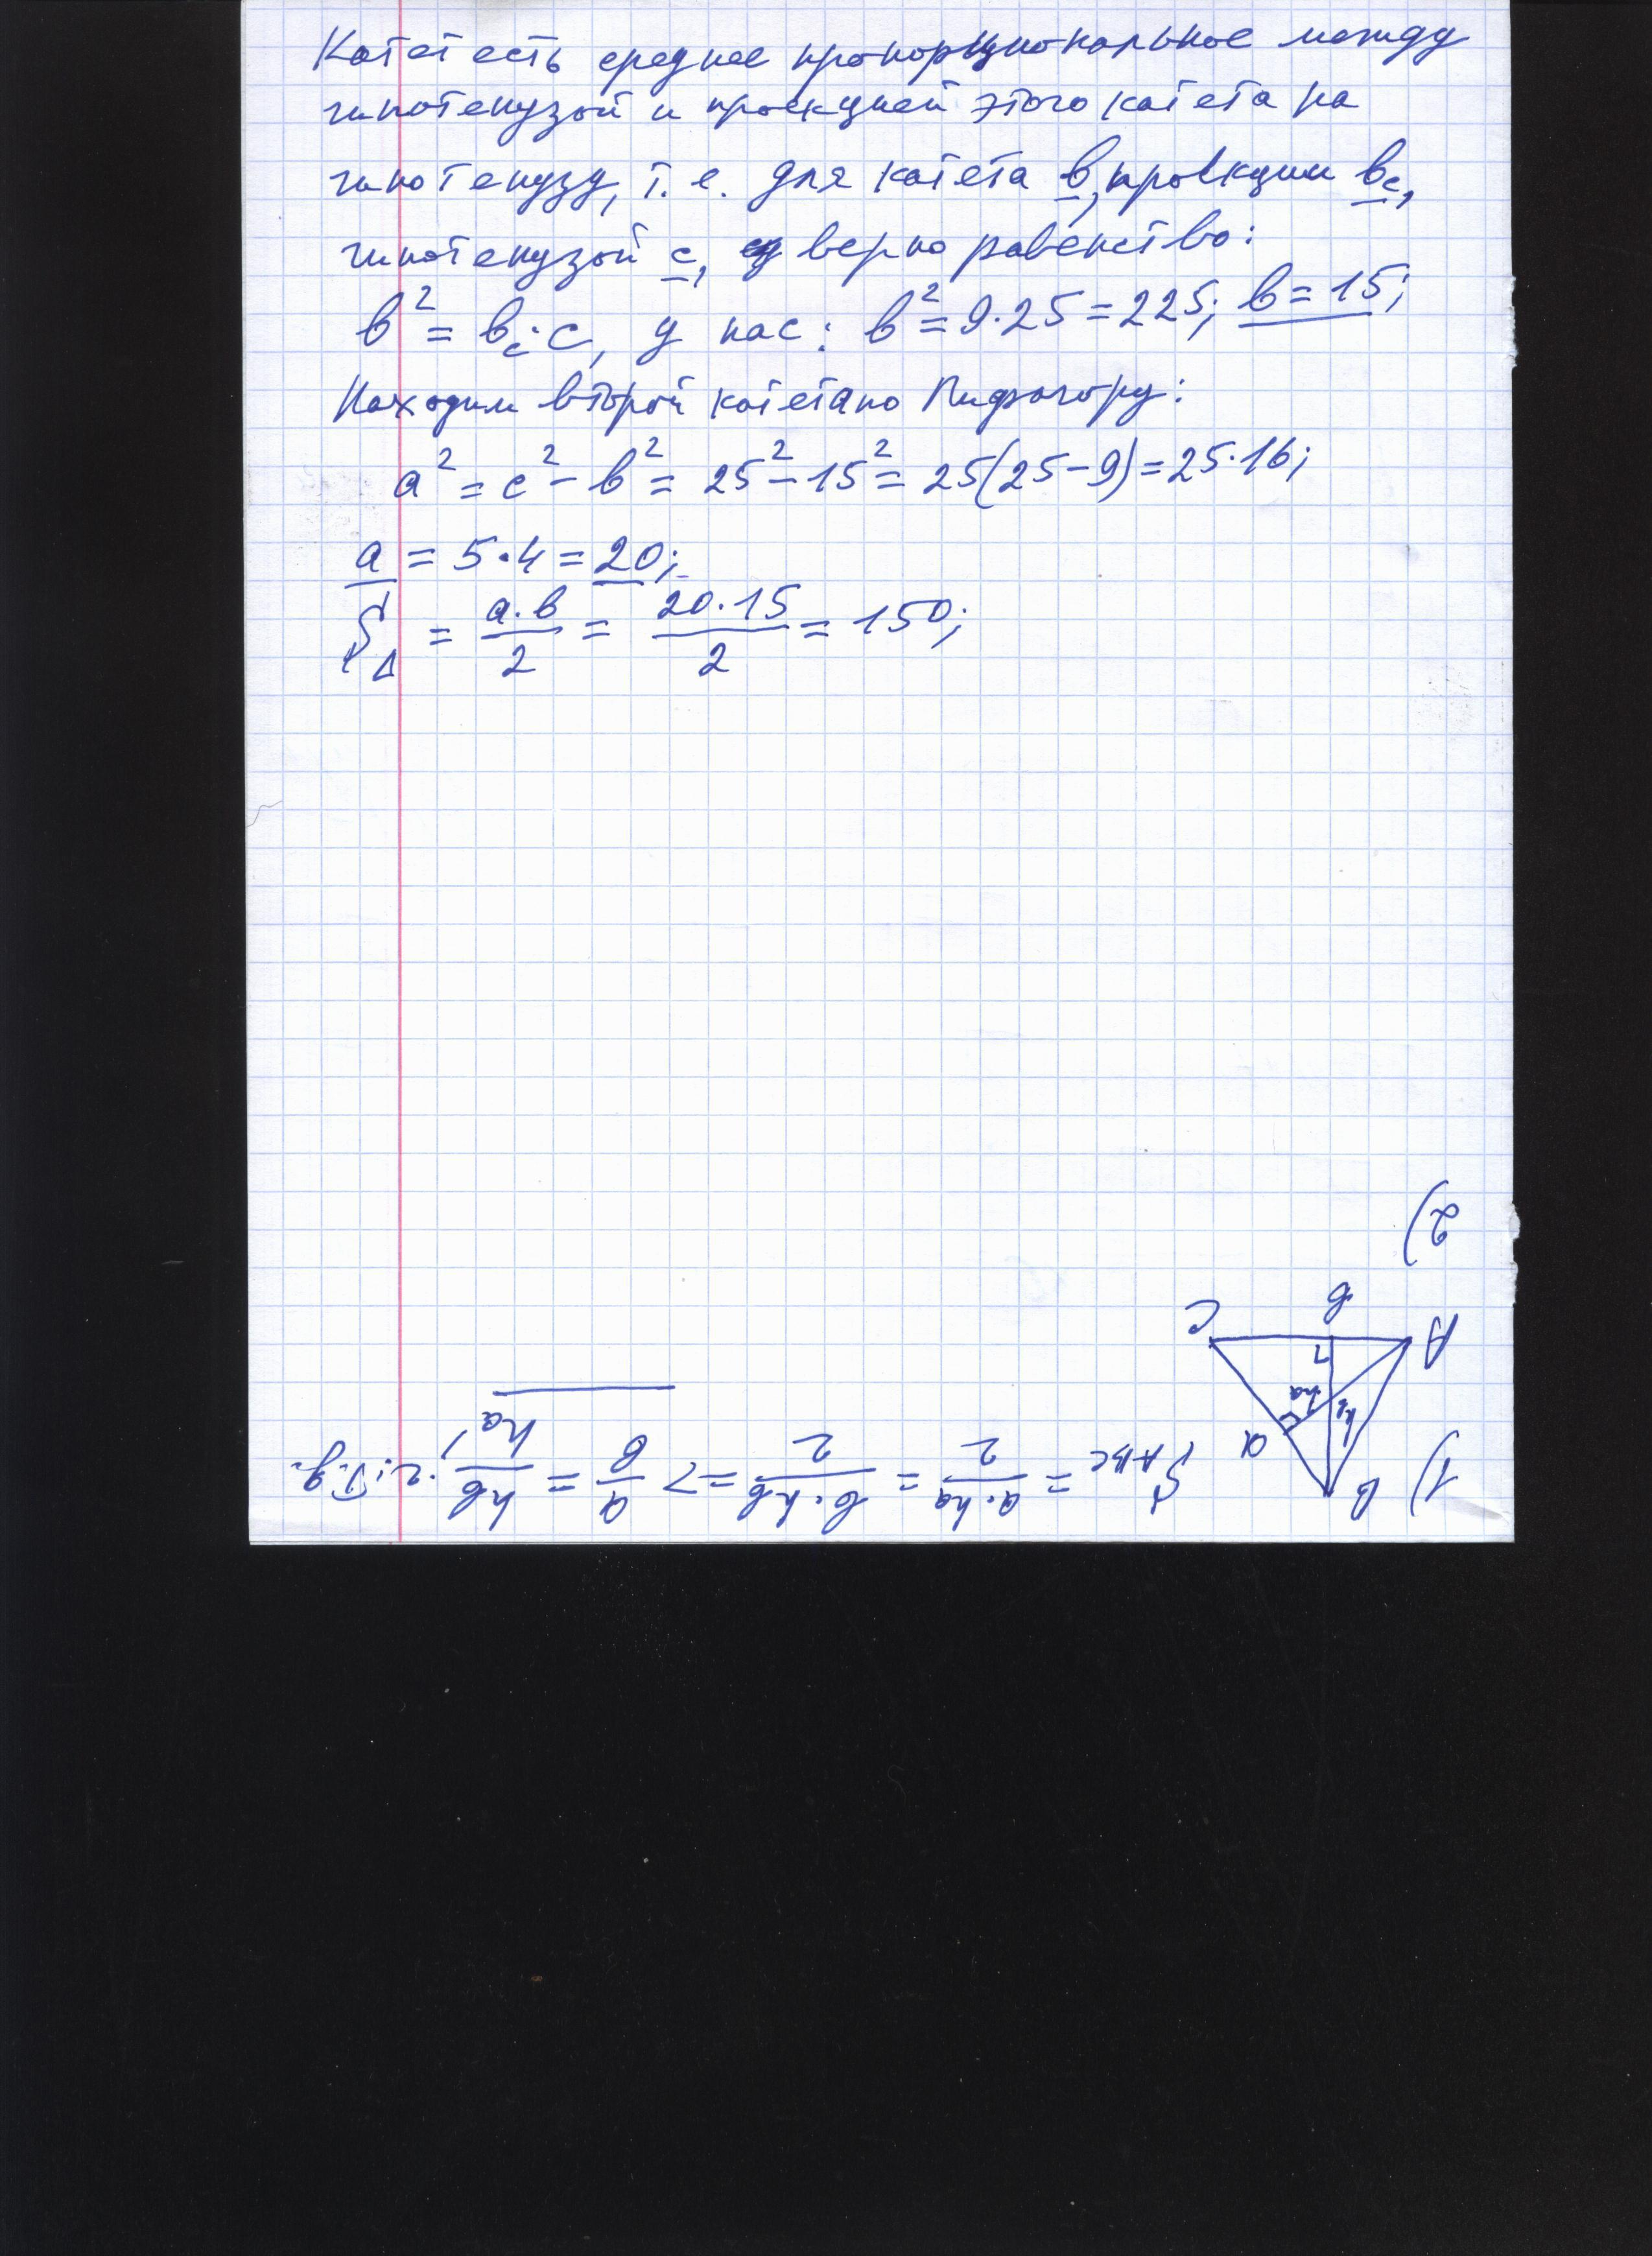 Катет есть среднее пропорциональное между
гипотенузой и проекцией этого катета на
гипотенузу, т. е. для катета b, проекции b_c,
гипотенузой c, верно равенство:
b² = b_c·c, у нас: b² = 9·25 = 225; b = 15;
Находим второй катет по Пифагору:
a² = c² - b² = 25² - 15² = 25(25-9) = 25·16;
a = 5·4 = 20;
S_Δ = a·b/2 = 20·15/2 = 150;
1)
B
a
h_b
h_a
A
b
C
S_ABC = a·h_a/2 = b·h_b/2 => a/b = h_b/h_a, ч.т.д.
2)